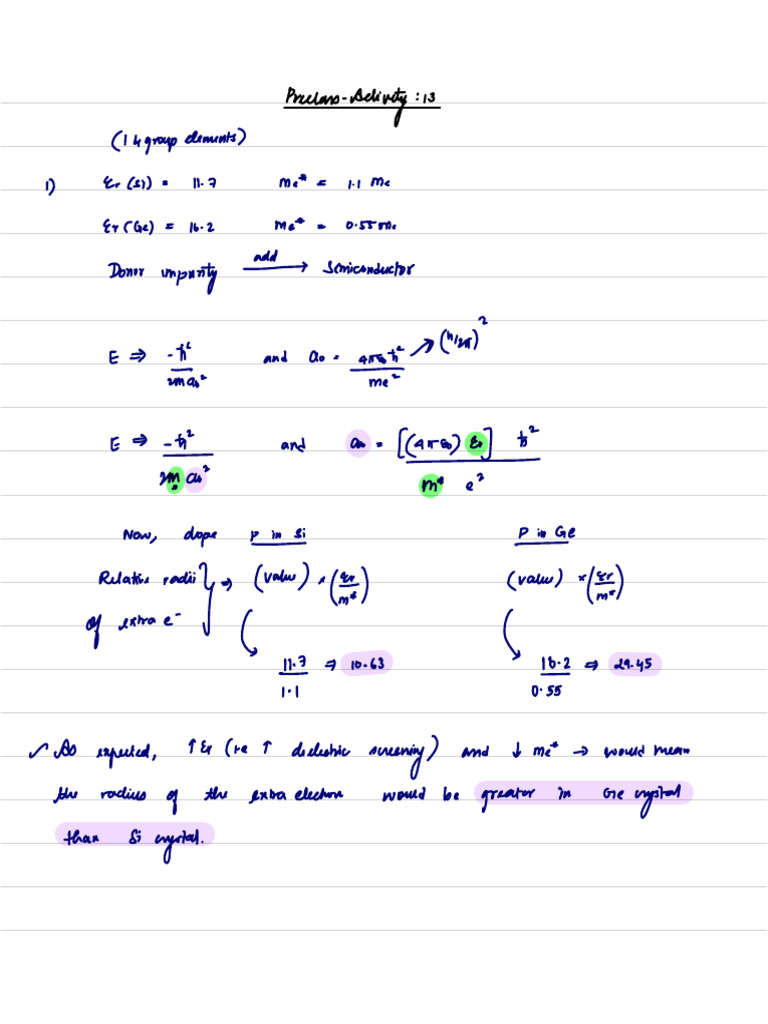 Preclass-Activity : 13
(14 group elements)
1) εr (Si) = 11.7 me* = 1.1 me
εr (Ge) = 16.2 me* = 0.55 me
Donor impurity add → Semiconductor
E ⇒ -ħ²/2ma₀² and a₀ = 4πε₀ħ²/me² → (h/2π)²
E ⇒ -ħ²/2m a₀² and a₀ = [(4πε₀) εr] ħ²/m* e²
Now, dope P in Si P in Ge
Relative radii of extra e⁻ ⇒ (value) × (εr/m*) (value) × (εr/m*)
11.7/1.1 ⇒ 10.63 16.2/0.55 ⇒ 29.45
✓ As expected, ↑ εr (ie ↑ dielectric screening) and ↓ me* → would mean
the radius of the extra electron would be greater in Ge crystal
than Si crystal.